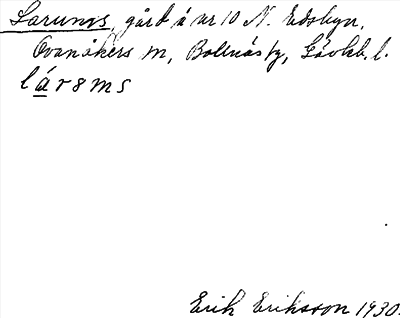 Larums, gård å nr 10 N. Edsbyn,
Ovanåkers sn, Bollnäs fg, Gävleb. l.
lárəms
Erik Eriksson 1930.